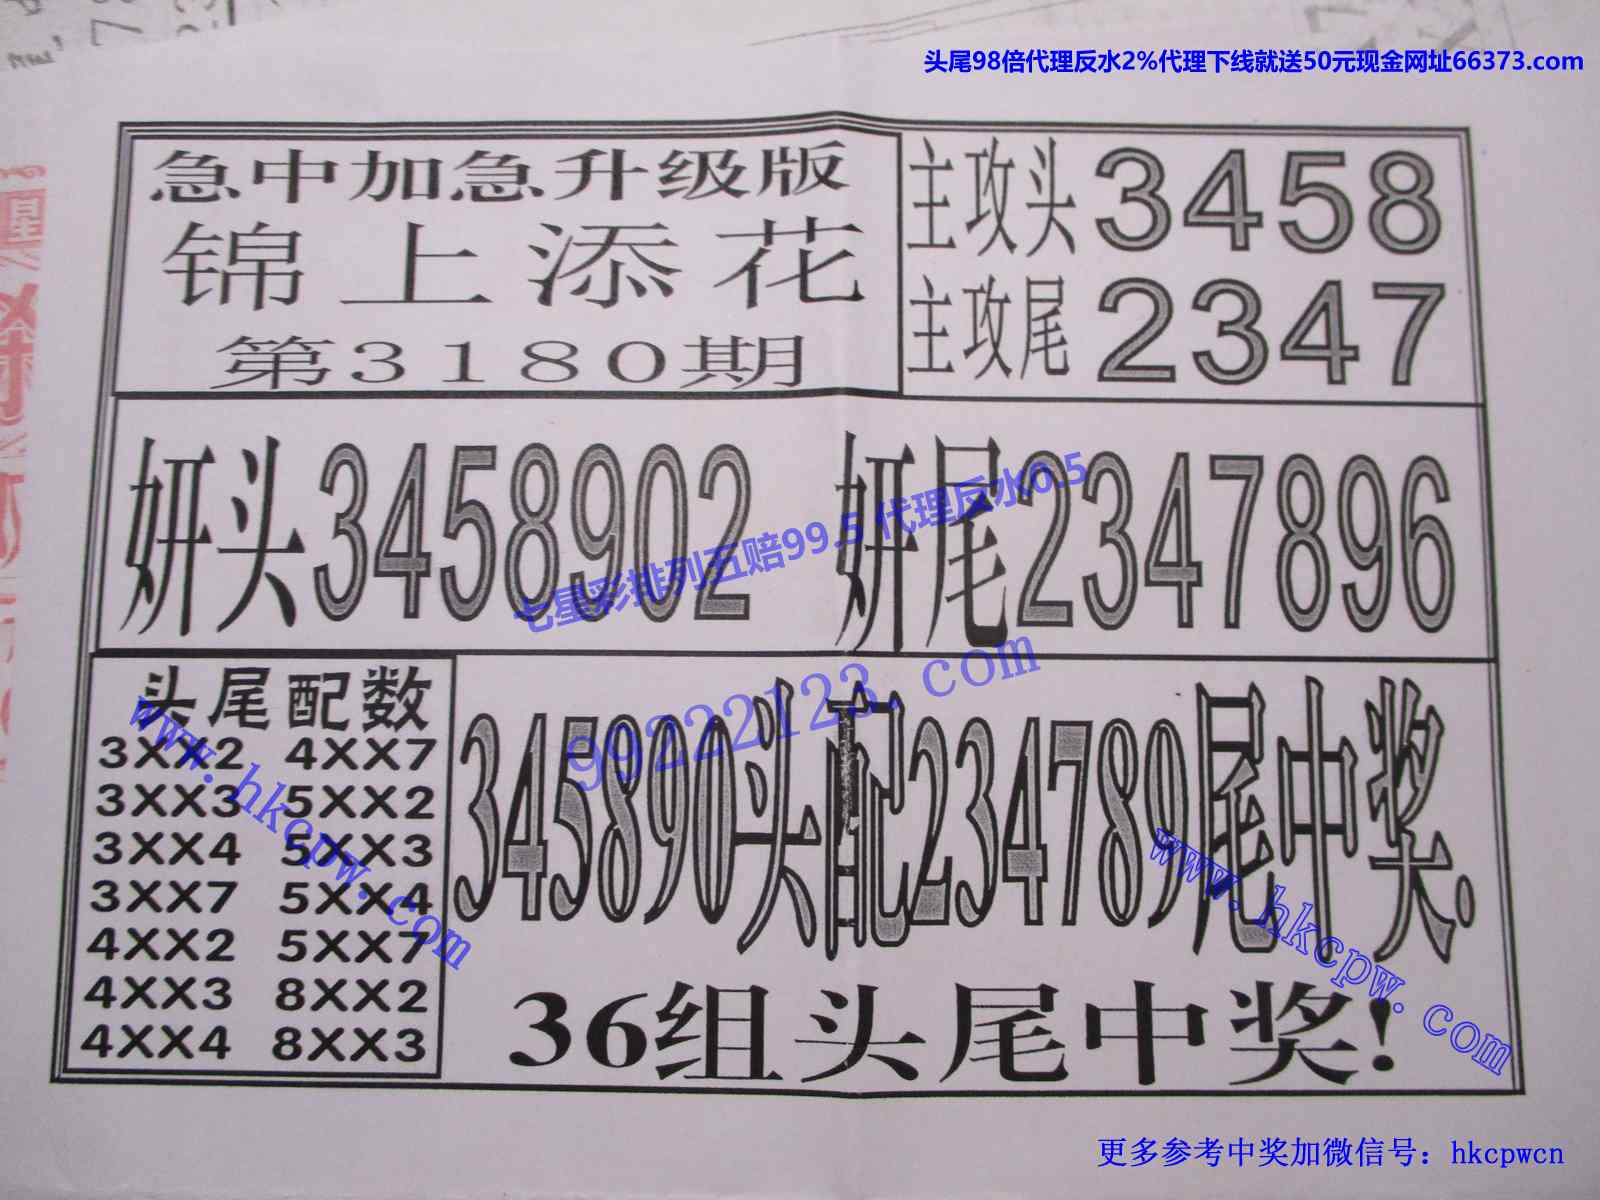 头尾98倍代理反水2%代理下线就送50元现金网址66373.com
急中加急升级版
锦上添花
第3180期
主攻头3458
主攻尾2347
妍头3458902
妍尾2347896
七星彩排列五赔99.5 代理反水0.5
99222123.com
头尾配数
3XX2 4XX7
3XX3 5XX2
3XX4 5XX3
3XX7 5XX4
4XX2 5XX7
4XX3 8XX2
4XX4 8XX3
www.hkcpw.com
345890头配234789尾中奖.
www.hkcpw.com
36组头尾中奖!
更多参考中奖加微信号：hkcpwcn